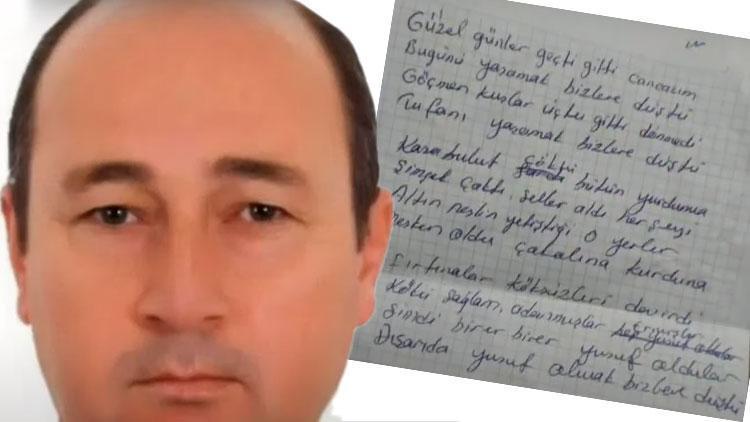 Güzel günler geçti gitti cancazım
Bugünü yaşamak bizlere düştü
Göçmen kuşlar uçtu gitti dönmedi
Tufanı yaşamak bizlere düştü
Karabulut çöktü bütün yurduma
Şimşek çaktı, seller aldı herşeyi
Altın neslin yetiştiği o yerler
mesken oldu çakalına kurduna
Fırtınalar köksüzleri devirdi
Kökü sağlam, adanmışlar
Şimdi birer birer yusuf oldular
Dışarıda yusuf olmak bizlere düştü